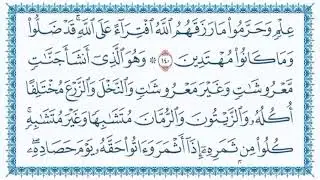 عِلْمٍ وَحَرَّمُوا۟ مَا رَزَقَهُمُ ٱللَّهُ ٱفْتِرَآءً عَلَى ٱللَّهِ ۚ قَدْ ضَلُّوا۟
وَمَا كَانُوا۟ مُهْتَدِينَ ١٤٠ ۞ وَهُوَ ٱلَّذِىٓ أَنشَأَ جَنَّٰتٍ
مَّعْرُوشَٰتٍ وَغَيْرَ مَعْرُوشَٰتٍ وَٱلنَّخْلَ وَٱلزَّرْعَ مُخْتَلِفًا
أُكُلُهُۥ وَٱلزَّيْتُونَ وَٱلرُّمَّانَ مُتَشَٰبِهًا وَغَيْرَ مُتَشَٰبِهٍ ۚ
كُلُوا۟ مِن ثَمَرِهِۦٓ إِذَآ أَثْمَرَ وَءَاتُوا۟ حَقَّهُۥ يَوْمَ حَصَادِهِۦ ۖ